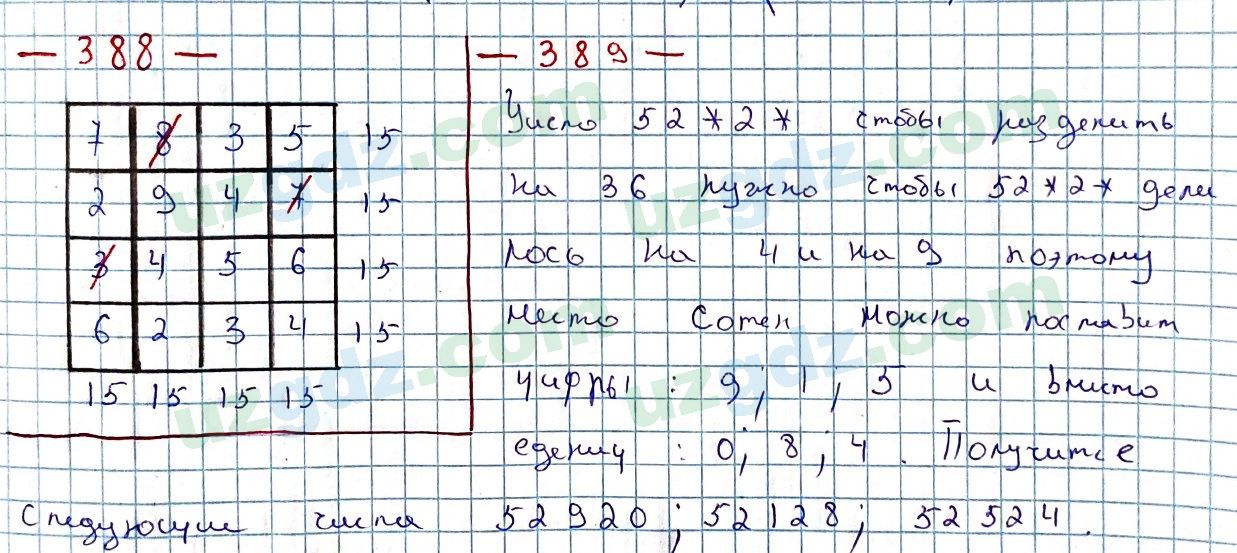 — 388 —
7 8 3 5 15
2 9 4 7 15
3 4 5 6 15
6 2 3 4 15
15 15 15 15
— 389 —
Число 52*2* чтобы разделить
на 36 нужно чтобы 52*2* дели
лось на 4 и на 9 поэтому
место сотен можно поставит
цифры : 9; 1; 5 и вместо
едениц : 0; 8; 4. Получится
следующие числа 52920; 52128; 52524.
uzgdz.com
uzgdz.com
uzgdz.com
uzgdz.com